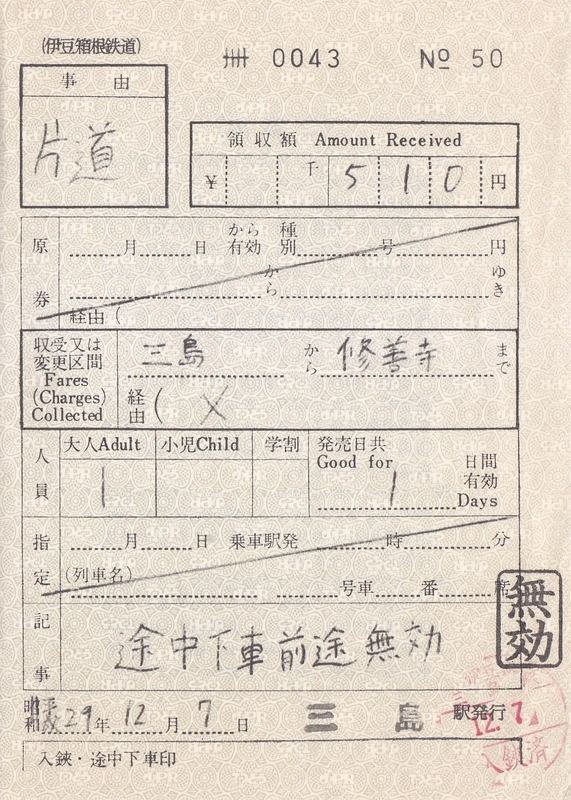 (伊豆箱根鉄道)
卌 0043 № 50
事由
片道
領収額 Amount Received
¥ 千 510円
原券 月 日 から有効 種別 号 円
から ゆき
経由 (
収受又は変更区間 Fares (Charges) Collected
三島 から 修善寺 まで
経由 ( ×
人員 大人Adult 小児Child 学割 発売日共 Good for 日間有効 Days
1 1
指定 月 日 乗車駅発 時 分
(列車名) 号車 番 席
無効
記事 途中下車前途無効
昭和 平成 29年 12月 7日 三島 駅発行
12.7.
入鋏済
入鋏・途中下車印